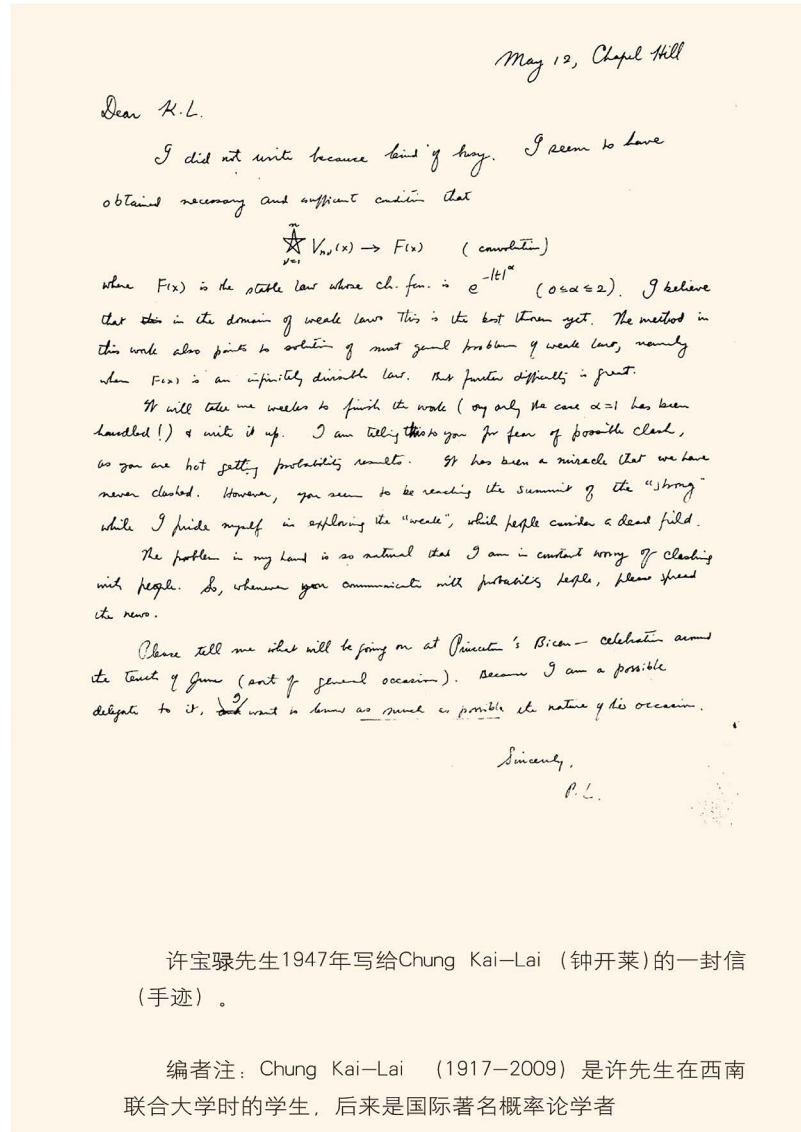 May 12, Chapel Hill
Dear K.L.
I did not write because kind of busy. I seem to have
obtained necessary and sufficient condition that
n
☆ Vnν(x) → F(x) (convolution)
ν=1
where F(x) is the stable law whose ch. fcn. is e^{-|t|^α} (0≤α≤2). I believe
that in the domain of weak laws this is the best theorem yet. The method in
this work also points to solution of most general problem of weak laws, namely
when F(x) is an infinitely divisible law. But further difficulty is great.
It will take me weeks to finish the work (only the case α=1 has been
handled!) & write it up. I am telling this to you for fear of possible clash,
as you are hot getting probability results. It has been a miracle that we have
never clashed. However, you seem to be reaching the summit of the "strong"
while I pride myself in exploring the "weak", which people consider a dead field.
The problem in my hand is so natural that I am in constant worry of clashing
with people. So, whenever you communicate with probability people, please spread
the news.
Please tell me what will be going on at Princeton's Bicen- celebration around
the tenth of June (sort of general occasion). Because I am a possible
delegate to it, I want to know as much as possible the nature of this occasion.
Sincerely,
P.L.
许宝騄先生1947年写给Chung Kai-Lai (钟开莱)的一封信
(手迹)。
编者注: Chung Kai-Lai (1917-2009) 是许先生在西南
联合大学时的学生, 后来是国际著名概率论学者